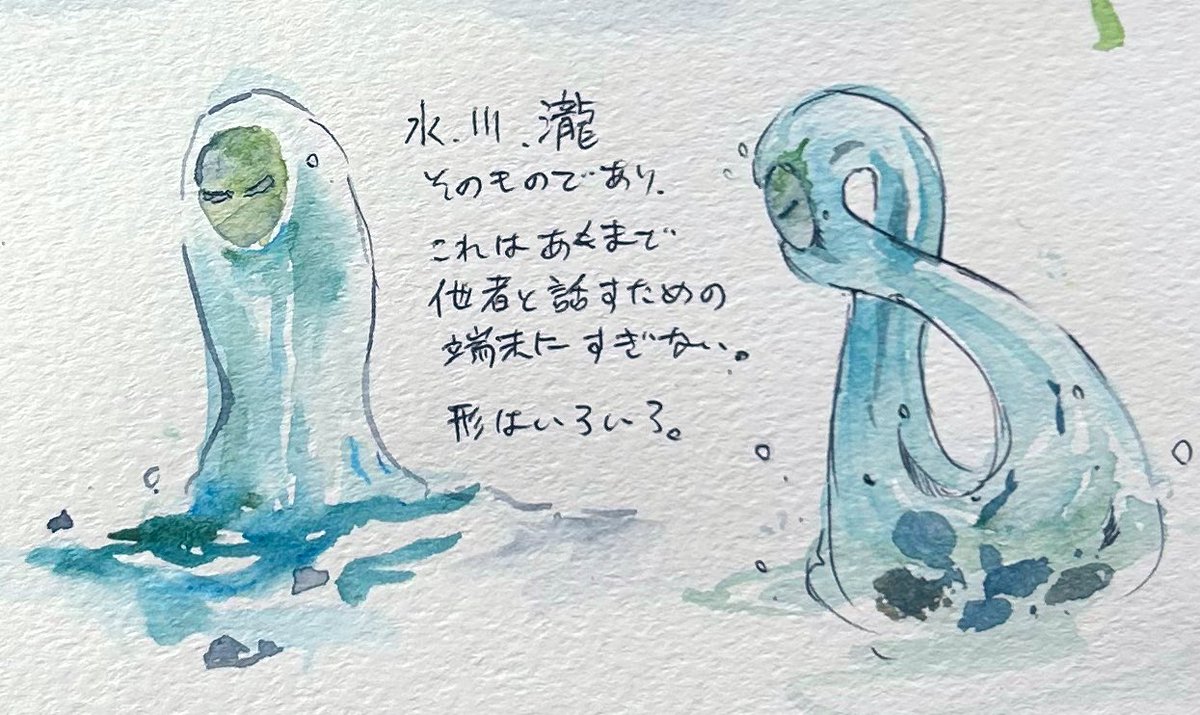 水.川.瀧
そのものであり.
これはあくまで
他者と話すための
端末にすぎない。
形はいろいろ。